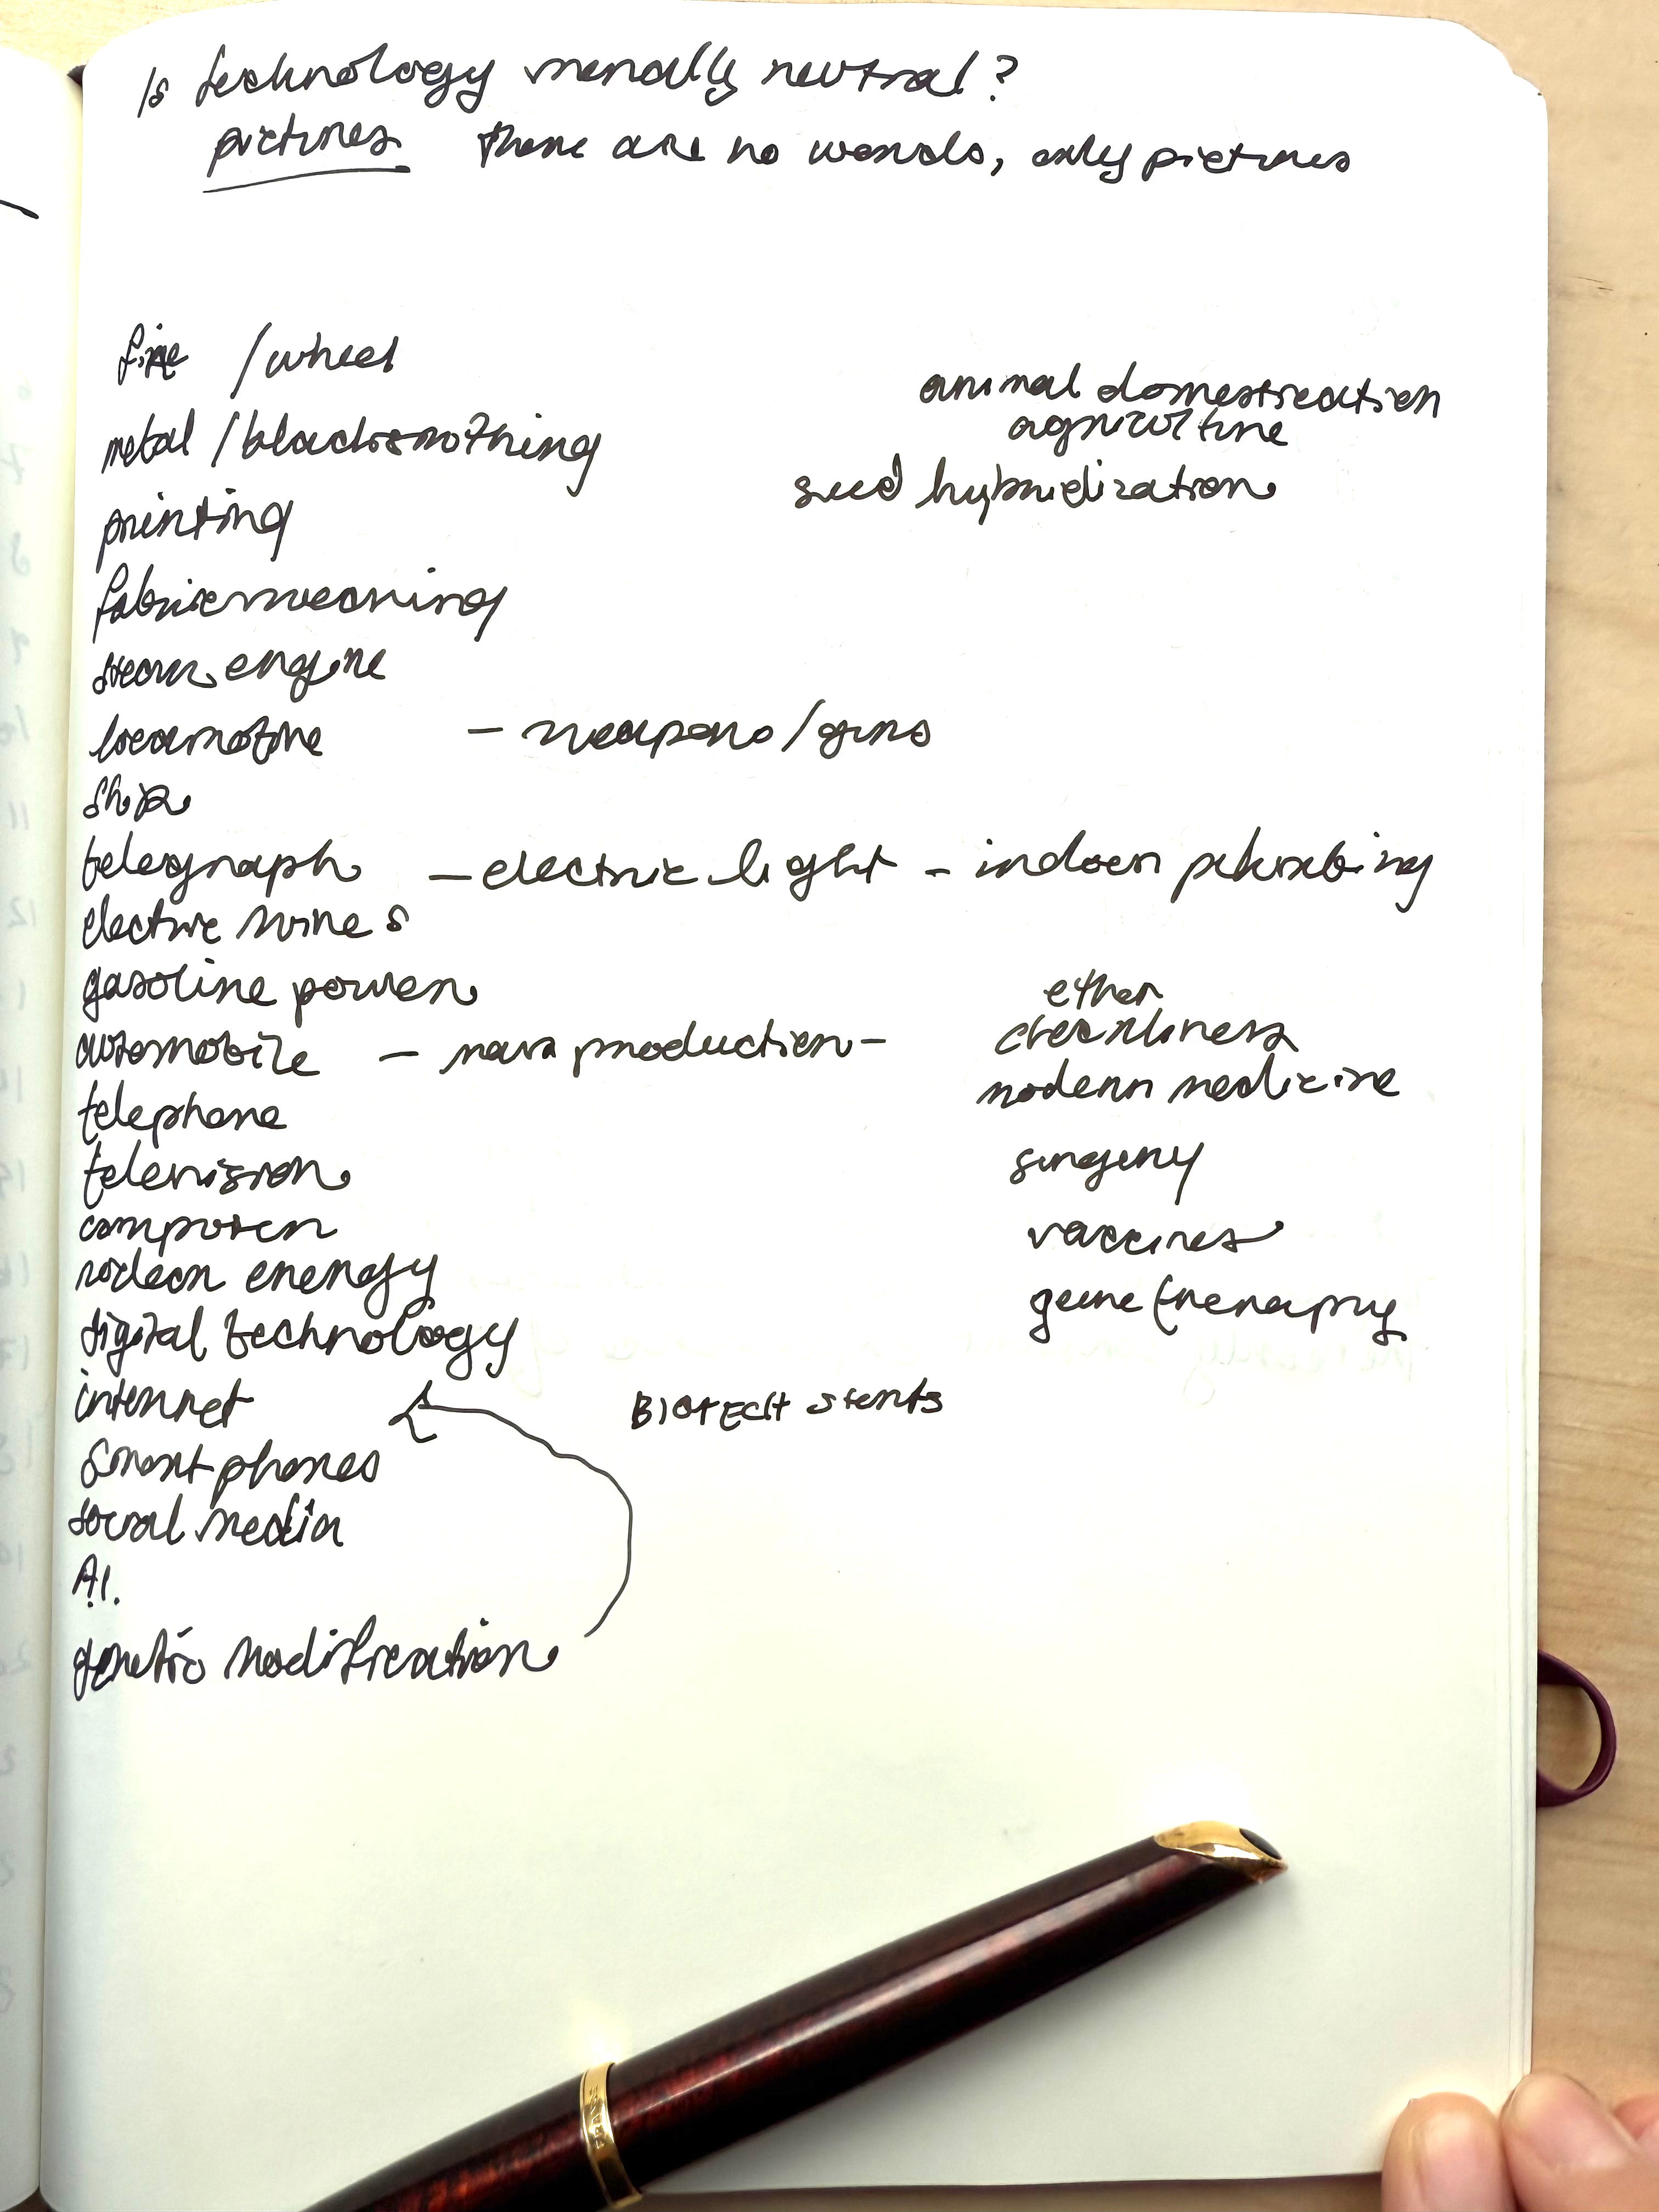 Is technology morally neutral?
pictures there are no words, only pictures
fire /wheel
animal domestication
agriculture
metal /blacksmithing
seed hybridization
printing
fabric weaving
steam engine
locomotive - weapons/guns
ship
telegraph - electric light - indoor plumbing
electric wires
gasoline power
ether
automobile - mass production -
cleanliness
modern medicine
telephone
surgery
television
computer
vaccines
nuclear energy
gene therapy
digital technology
internet
BIOTECH stents
smart phones
social media
A.I.
genetic modification